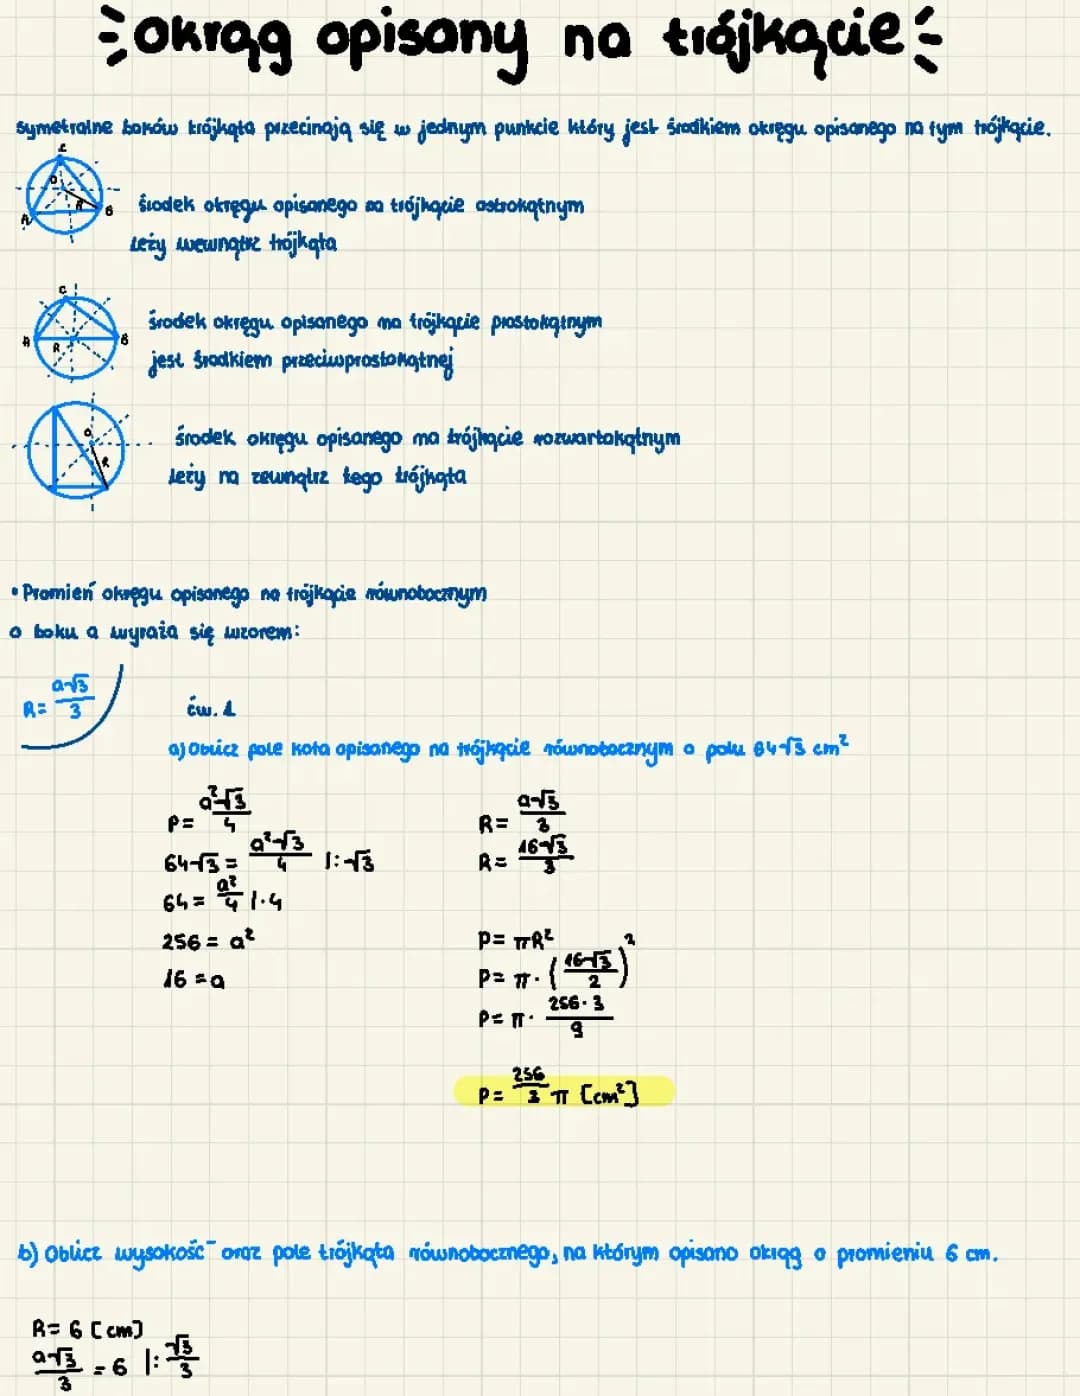 okrąg opisany na trójkącie
symetralne boków trójkąta przecinają się w jednym punkcie który jest środkiem okręgu opisanego na tym trójkącie.
C
O
R
A
B
środek okręgu opisanego na trójkącie ostrokątnym
leży wewnątrz trójkąta
C
A
R
B
środek okręgu opisanego na trójkącie prostokątnym
jest środkiem przeciwprostokątnej
O
R
środek okręgu opisanego na trójkącie rozwartokątnym
leży na zewnątrz tego trójkąta
• Promień okręgu opisanego na trójkącie równobocznym
o boku a wyraża się wzorem:
R= a√3/3
ćw. 1
a) Oblicz pole koła opisanego na trójkącie równobocznym o polu 64√3 cm²
P= a²√3/4
64√3 = a²√3/4 |:√3
64= a²/4 |·4
256= a²
16 =a
R= a√3/3
R= 16√3/3
P= πR²
P= π· (16√3/2)²
P= π· 256·3/9
P= 256/3 π [cm²]
b) Oblicz wysokość oraz pole trójkąta równobocznego, na którym opisano okrąg o promieniu 6 cm.
R= 6 [cm]
a√3/3 = 6 |: √3/3